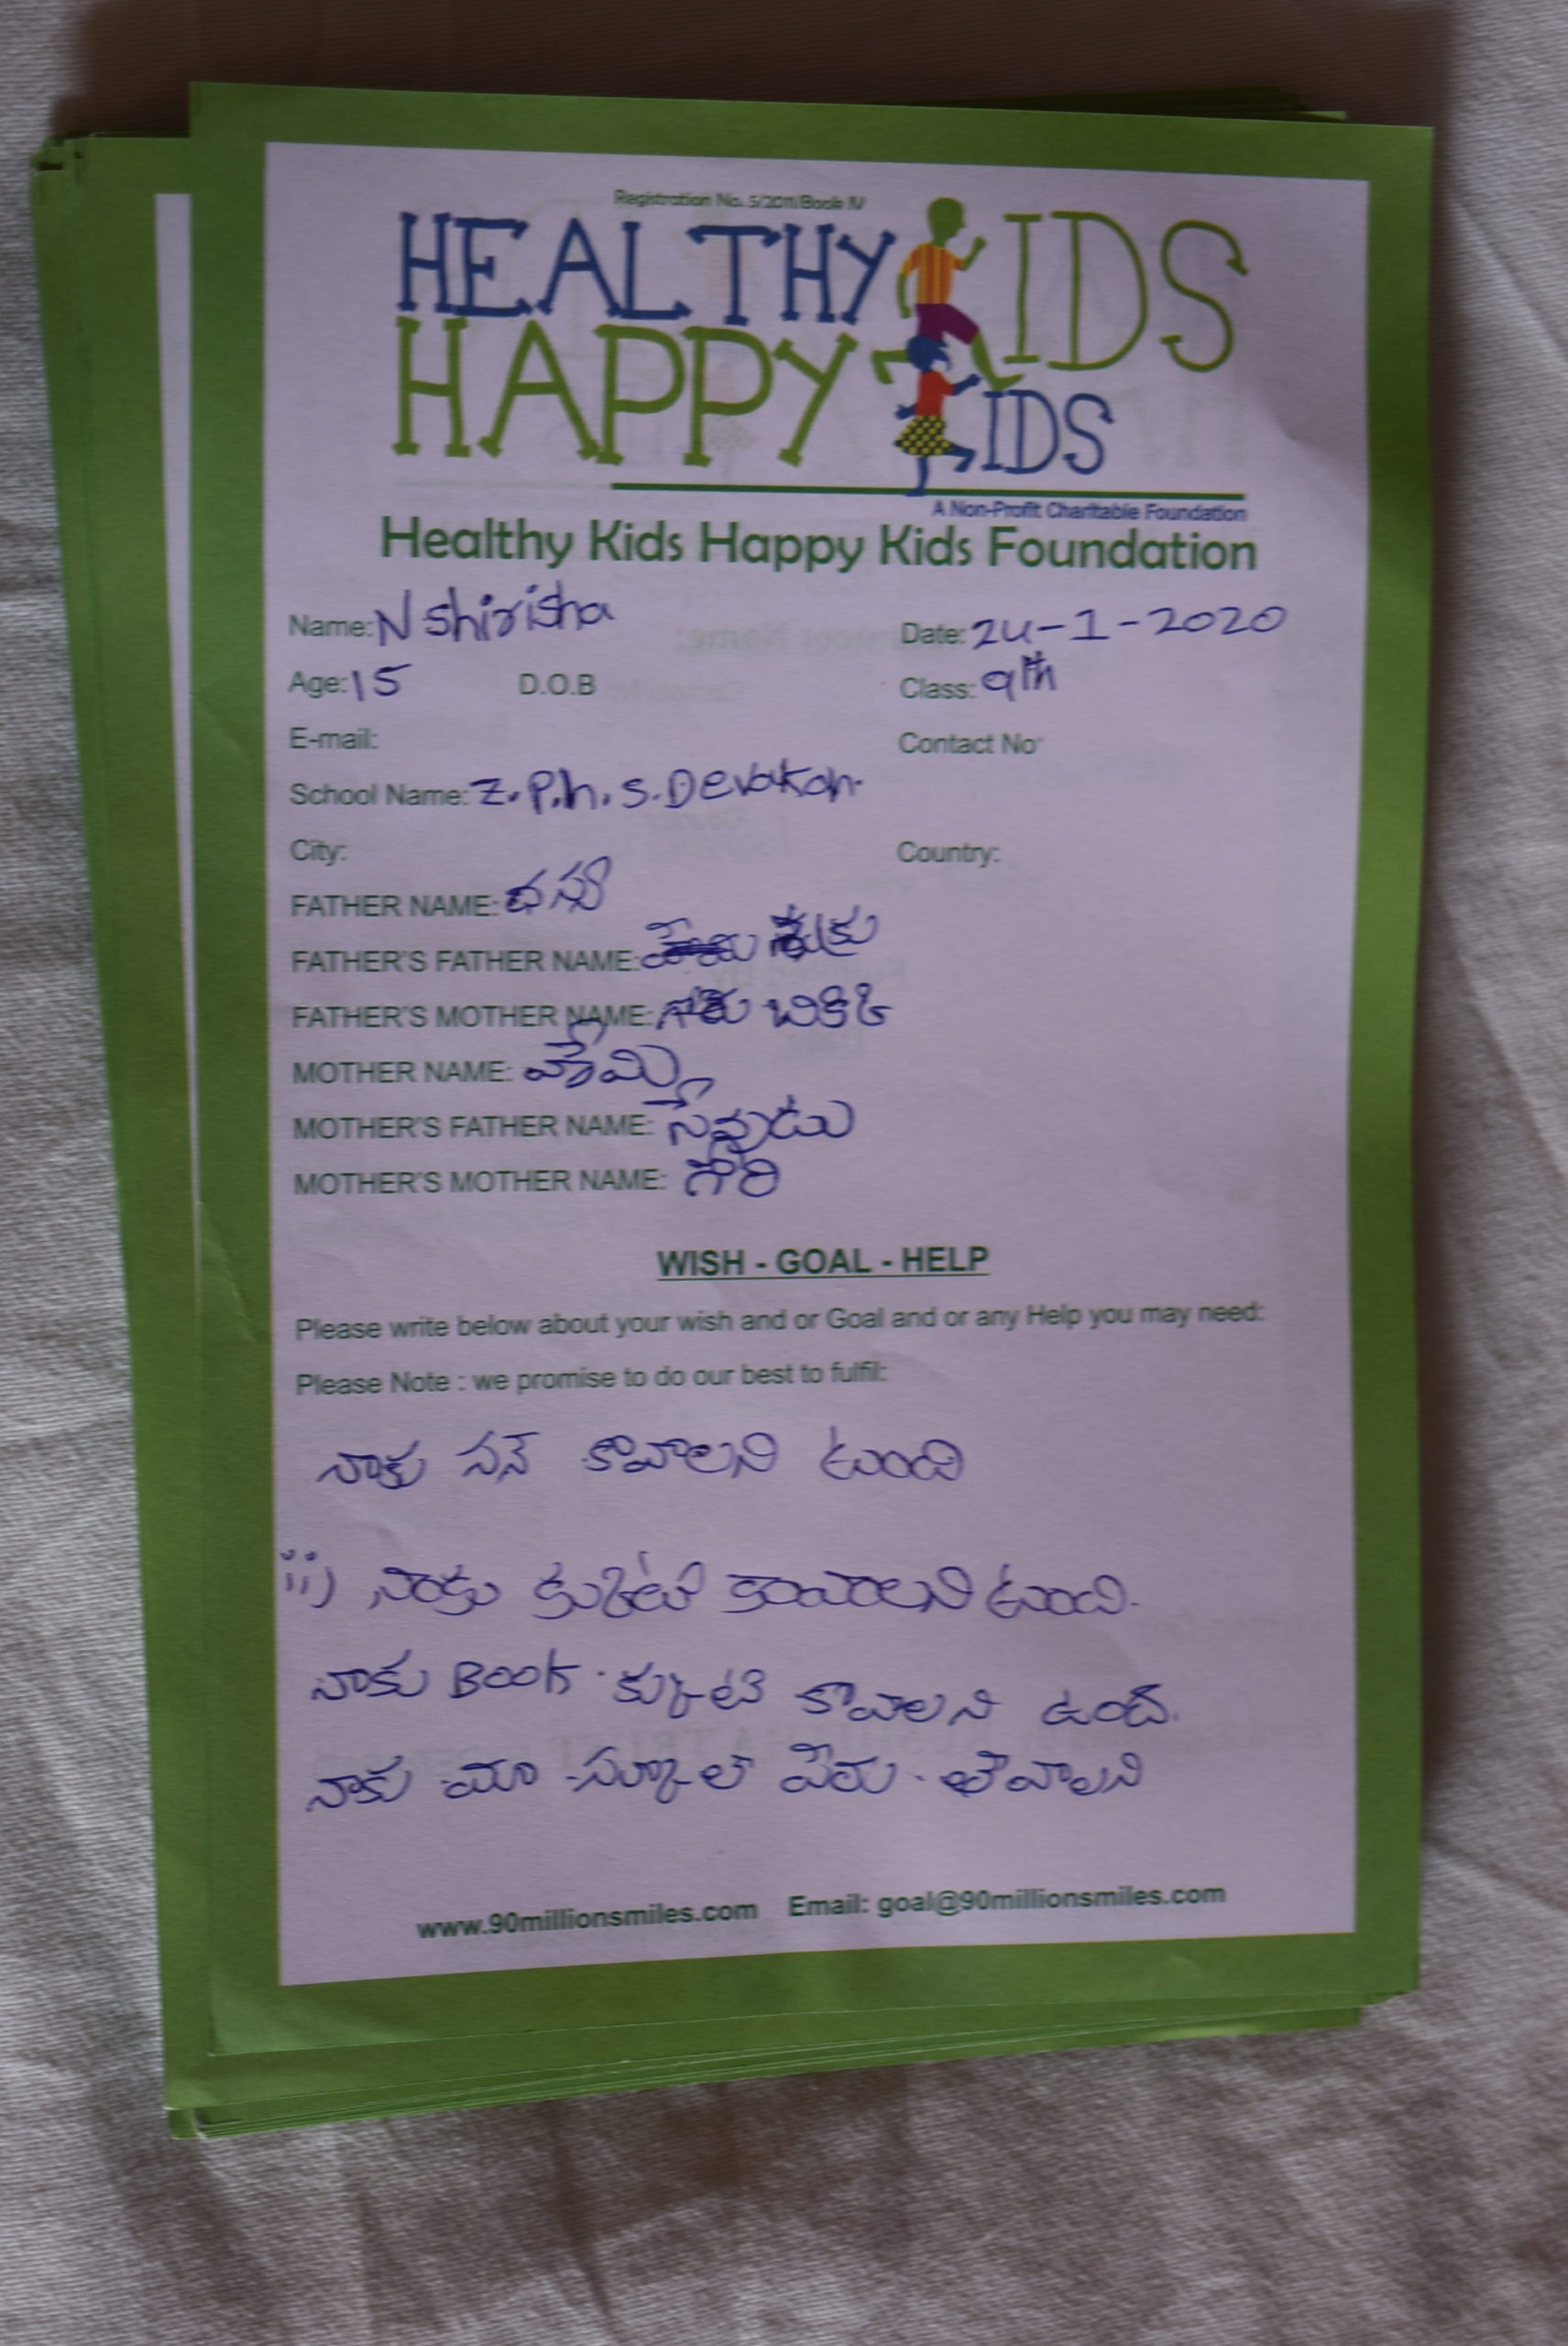 Registration No. 5/2011/Book IV
HEALTHY KIDS
HAPPY KIDS
A Non-Profit Charitable Foundation
Healthy Kids Happy Kids Foundation
Name: N Shirisha Date: 24-1-2020
Age: 15 D.O.B Class: 9th
E-mail: Contact No
School Name: Z.P.h.S. Devakon.
City: Country:
FATHER NAME:
FATHER'S FATHER NAME:
FATHER'S MOTHER NAME:
MOTHER NAME: హేమ్లి
MOTHER'S FATHER NAME: సేవుడు
MOTHER'S MOTHER NAME: గౌరి
WISH - GOAL - HELP
Please write below about your wish and or Goal and or any Help you may need:
Please Note : we promise to do our best to fulfil:
నాకు కావాలని ఉంది
ii) నాకు కావాలని ఉంది.
నాకు Book కావాలని ఉంది.
నాకు మా స్కూల్ పేరు
www.90millionsmiles.com Email: goal@90millionsmiles.com